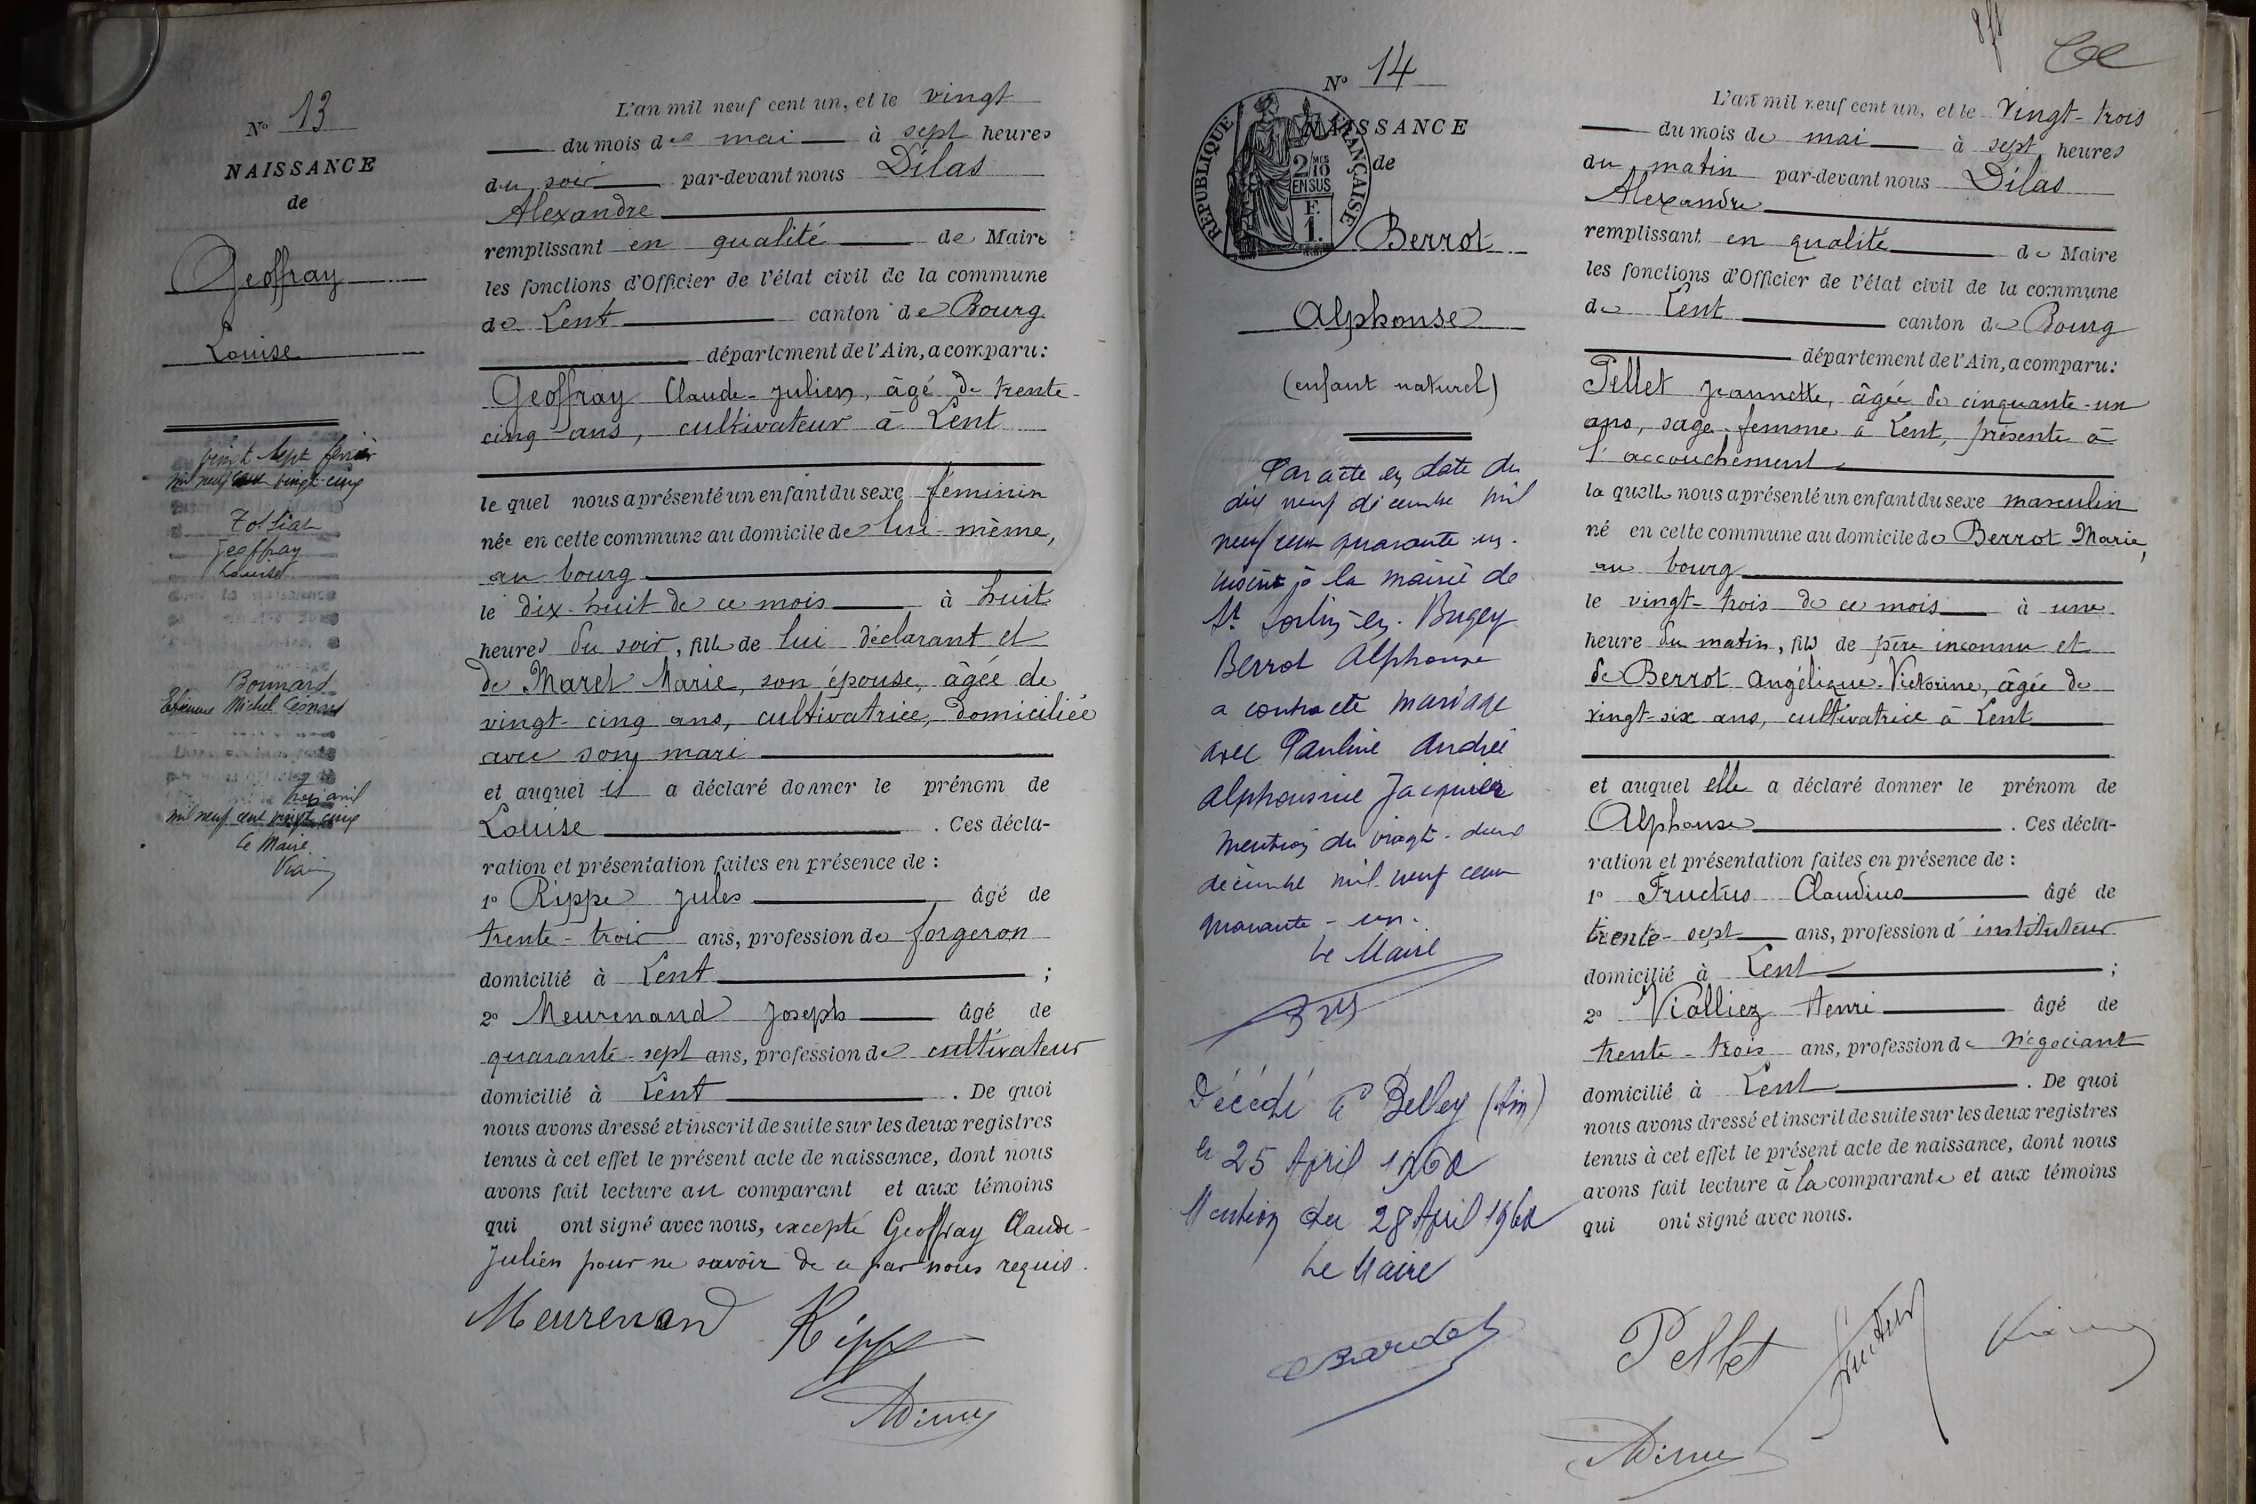 N° 13
NAISSANCE
de
Geoffray
Louise
vingt sept février
mil neuf cent vingt cinq
Geoffray
Louise
Bonnard
Michel Léonard
trois avril
mil neuf cent vingt cinq
Le Maire
L'an mil neuf cent un, et le vingt
du mois de mai à sept heures
du soir par-devant nous Dilas
Alexandre
remplissant en qualité de Maire
les fonctions d'Officier de l'état civil de la commune
de Lent canton de Bourg
département de l'Ain, a comparu :
Geoffray Claude-Julien, âgé de trente-
cinq ans, cultivateur à Lent
le quel nous a présenté un enfant du sexe féminin
née en cette commune au domicile de lui-même,
au bourg
le dix-huit de ce mois à huit
heures du soir, fille de lui déclarant et
de Maret Marie, son épouse, âgée de
vingt-cinq ans, cultivatrice, domiciliée
avec son mari
et auquel il a déclaré donner le prénom de
Louise . Ces décla-
ration et présentation faites en présence de :
1° Rippe Jules , âgé de
trente-trois ans, profession de forgeron
domicilié à Lent ;
2° Meurenand Joseph âgé de
quarante-sept ans, profession de cultivateur
domicilié à Lent . De quoi
nous avons dressé et inscrit de suite sur les deux registres
tenus à cet effet le présent acte de naissance, dont nous
avons fait lecture au comparant et aux témoins
qui ont signé avec nous, excepté Geoffray Claude-
Julien pour ne savoir de ce par nous requis.
Meurenand Rippe
N° 14
NAISSANCE
de
RÉPUBLIQUE FRANÇAISE
2/10
EN SUS
F.
1.
Berrot
Alphonse
(enfant naturel)
Par acte en date du
dix neuf décembre mil
neuf cent quarante un.
inscrit à la mairie de
St Sorlin-en-Bugey
Berrot Alphonse
a contracté mariage
avec Pauline Andrée
Alphonsine Jacquier
Mention du vingt-deux
décembre mil neuf cent
quarante-un.
Le Maire
Décédé à Belley (Ain)
le 25 Avril
Mention du 28 Avril
Le Maire
L'an mil neuf cent un, et le vingt-trois
du mois de mai à sept heures
du matin par-devant nous Dilas
Alexandre
remplissant en qualité de Maire
les fonctions d'Officier de l'état civil de la commune
de Lent canton de Bourg
département de l'Ain, a comparu :
Pellet Jeannette, âgée de cinquante-un
ans, sage-femme à Lent, présente à
l'accouchement
la quelle nous a présenté un enfant du sexe masculin
né en cette commune au domicile de Berrot Marie,
au bourg
le vingt-trois de ce mois à une
heure du matin, fils de père inconnu et
de Berrot Angélique-Victorine, âgée de
vingt-six ans, cultivatrice à Lent
et auquel elle a déclaré donner le prénom de
Alphonse . Ces décla-
ration et présentation faites en présence de :
1° Fructus Claudius âgé de
trente-sept ans, profession d'instituteur
domicilié à Lent ;
2° Vialliez Henri âgé de
trente-trois ans, profession de négociant
domicilié à Lent . De quoi
nous avons dressé et inscrit de suite sur les deux registres
tenus à cet effet le présent acte de naissance, dont nous
avons fait lecture à la comparante et aux témoins
qui ont signé avec nous.
Pellet Fructus